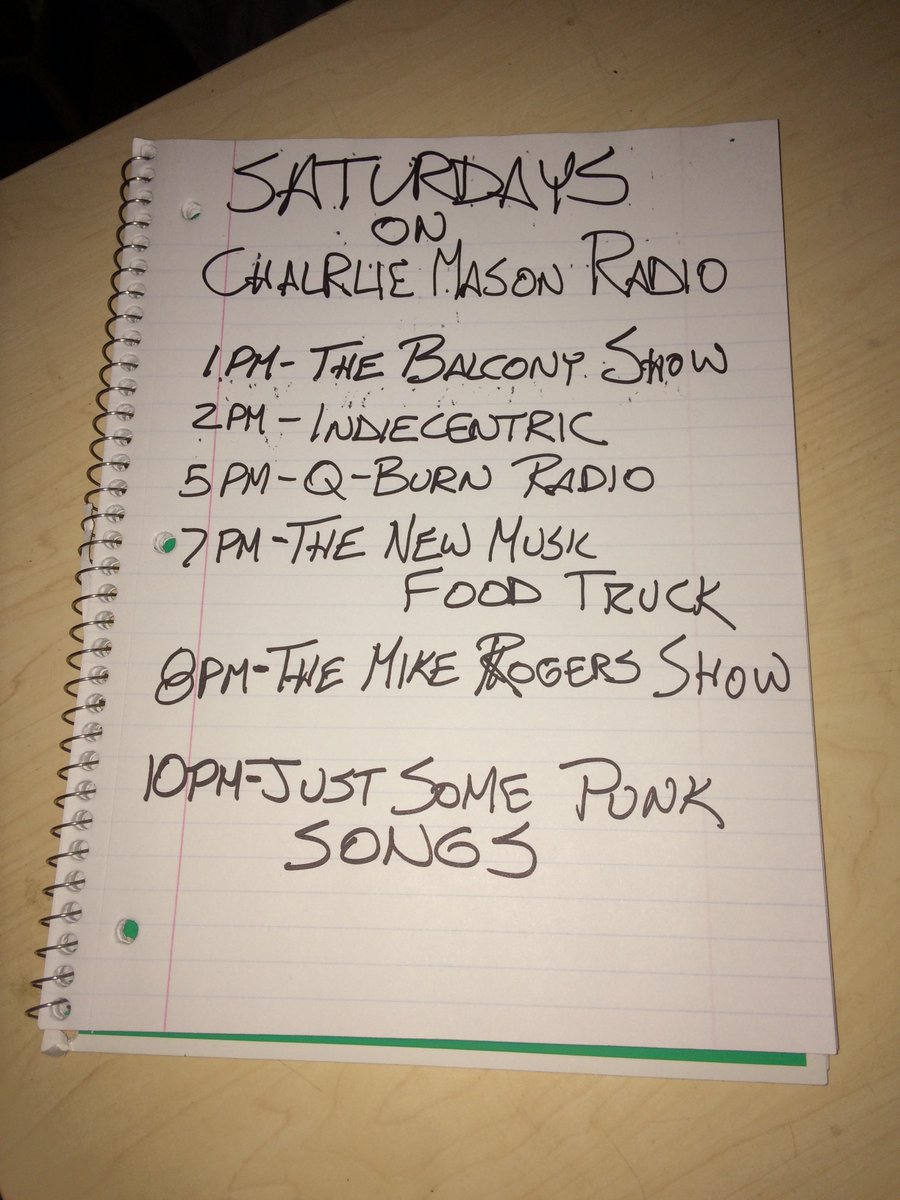 SATURDAYS
ON
CHALRLIE MASON RADIO
1PM- THE BALCONY SHOW
2PM - INDIECENTRIC
5PM-Q-BURN RADIO
7PM-THE NEW MUSIC
FOOD TRUCK
8PM-THE MIKE ROGERS SHOW
10PM-JUST SOME PUNK
SONGS